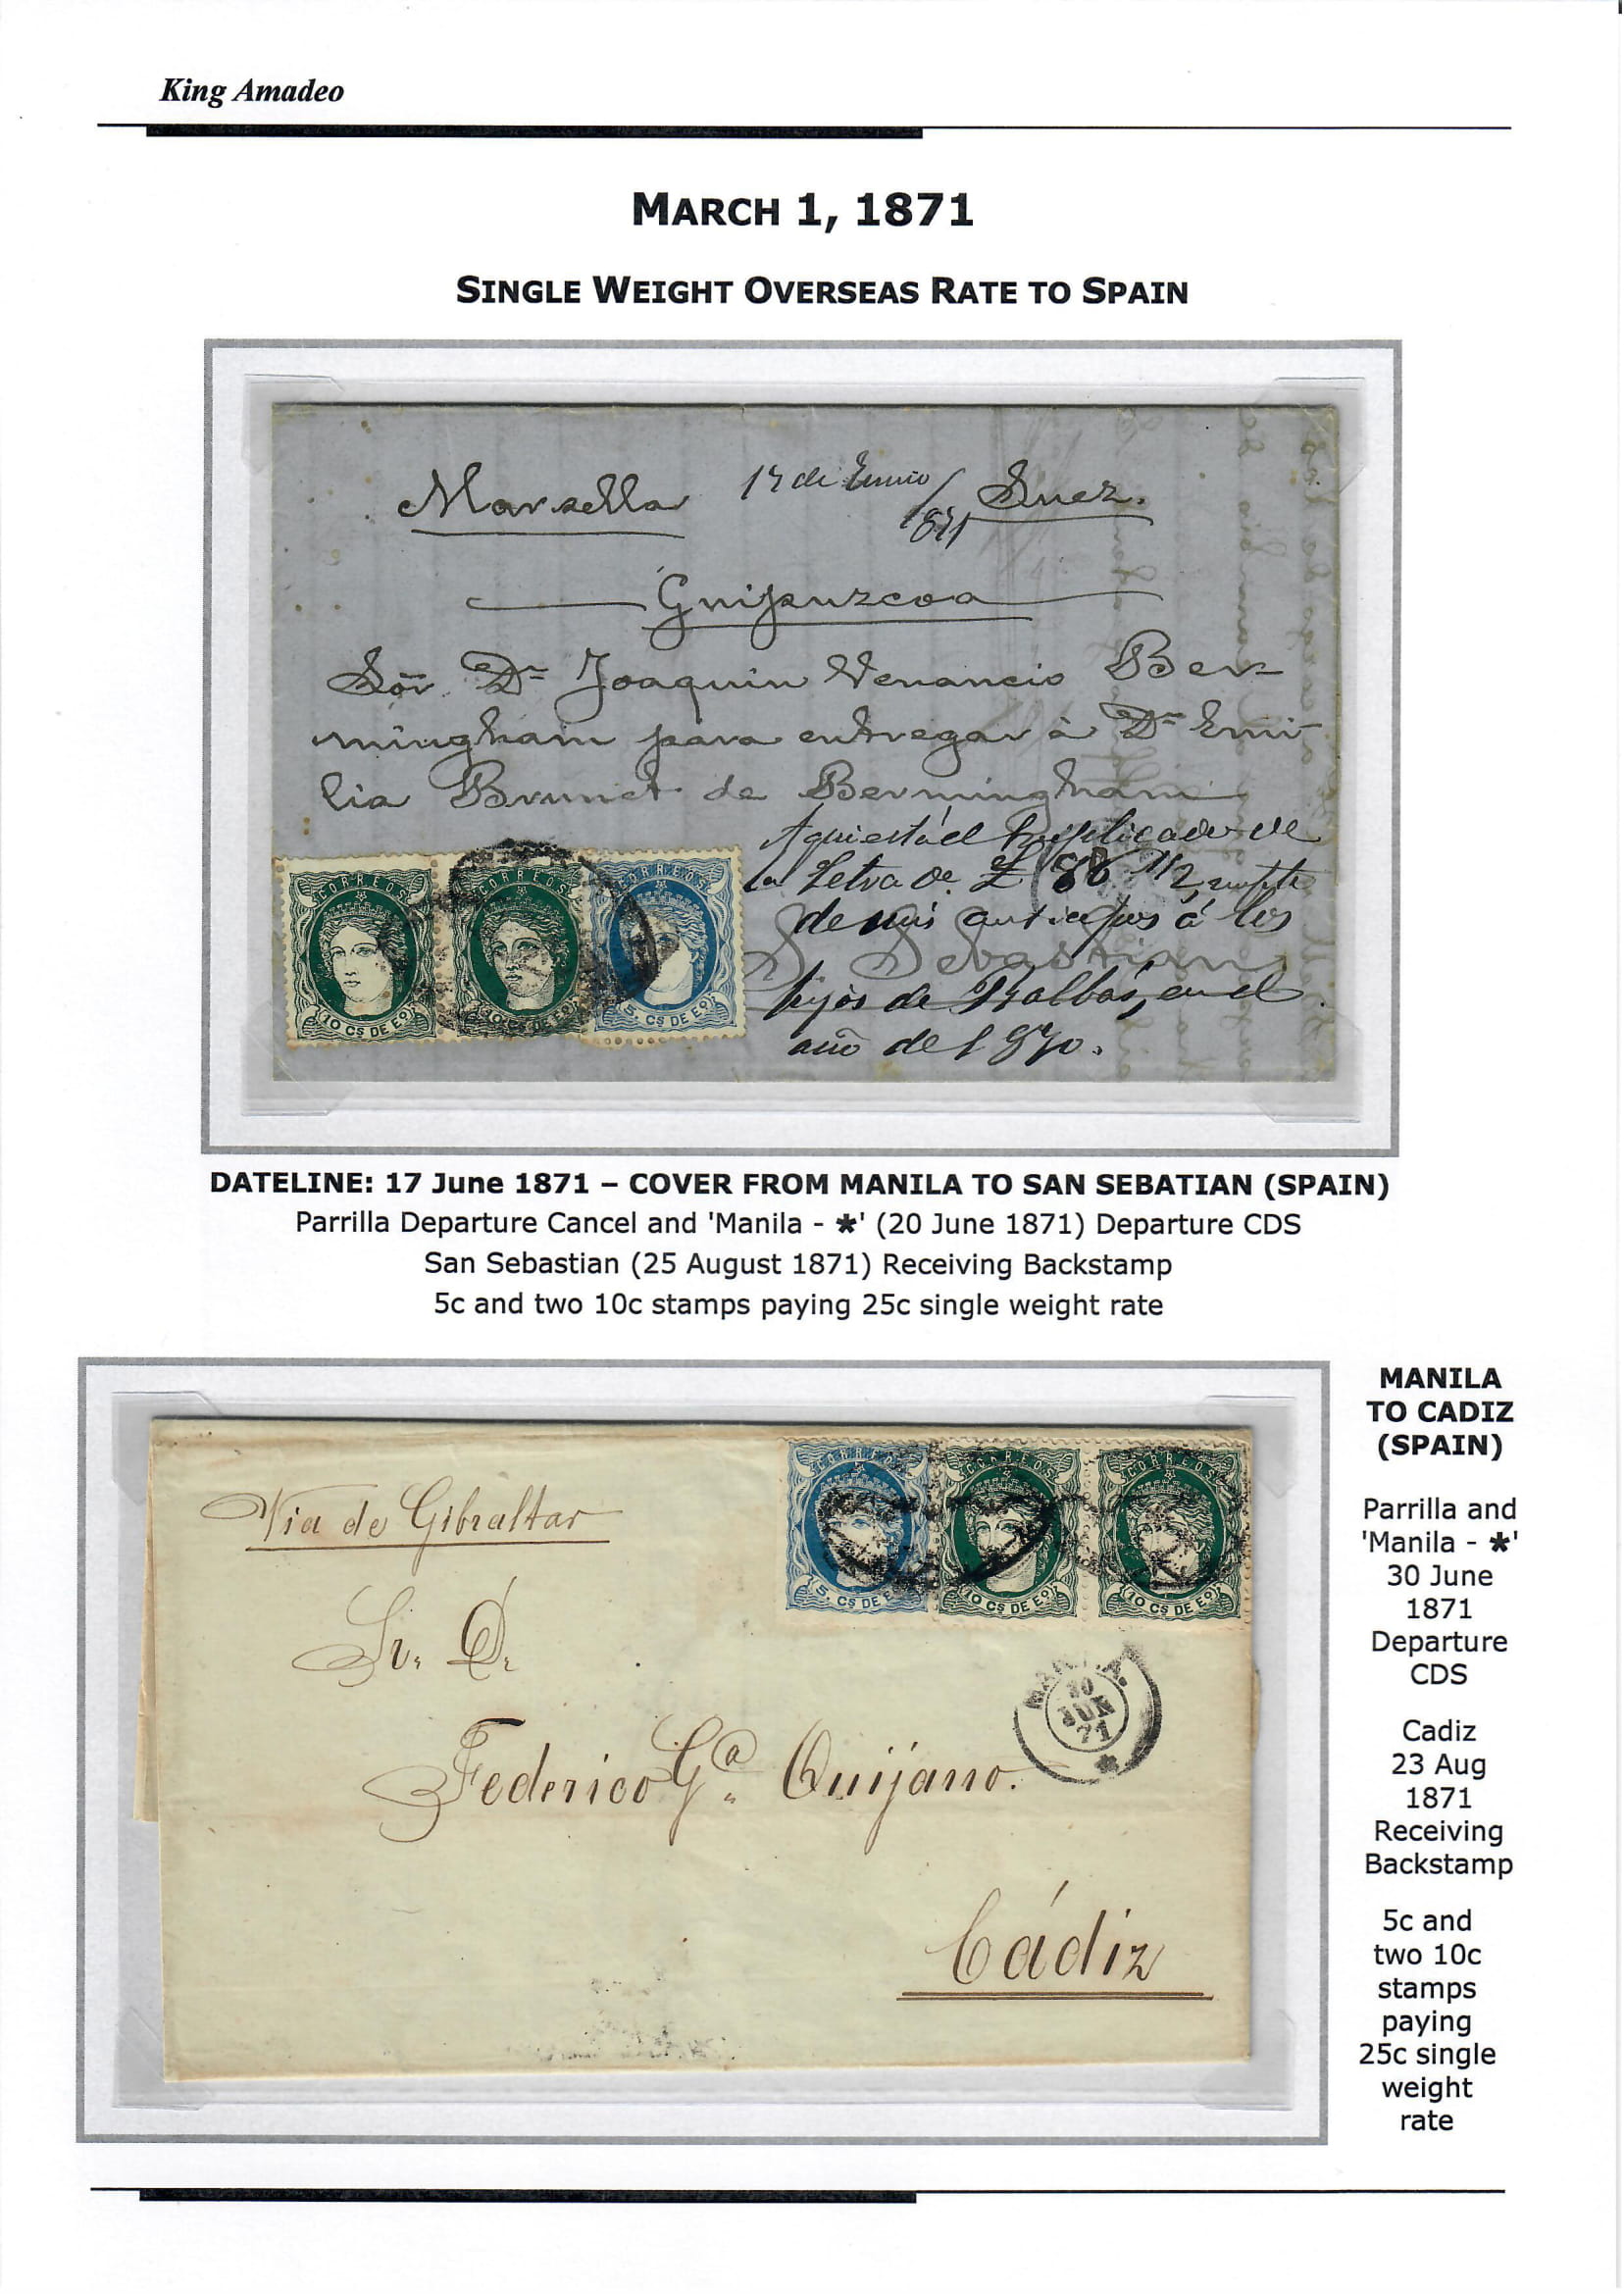 King Amadeo
MARCH 1, 1871
SINGLE WEIGHT OVERSEAS RATE TO SPAIN
Marsella 17 de Junio / 871 Suez.
Guipuzcoa
Sör. Dn Joaquin Venancio Ber-
mingham para entregar à Da Emi-
lia Brunet de Bermingham
Aqui está el triplicado de
la Letra de £ 86 11/2
de mis anticipos á los
S Sebastian
hijos de Balbás, en el
año de 1870.
CORREOS
10 Cs DE Eo
CORREOS
10 Cs DE Eo
CORREOS
5. Cs DE Eo
DATELINE: 17 June 1871 – COVER FROM MANILA TO SAN SEBATIAN (SPAIN)
Parrilla Departure Cancel and 'Manila - *' (20 June 1871) Departure CDS
San Sebastian (25 August 1871) Receiving Backstamp
5c and two 10c stamps paying 25c single weight rate
Via de Gibraltar
CORREOS
5. Cs DE E
CORREOS
10 Cs DE Eo
CORREOS
10 Cs DE Eo
Sr. D.
MANILA.
JUN
71
*
Federico Ga. Quijano.
Cádiz
MANILA
TO CADIZ
(SPAIN)
Parrilla and
'Manila - *'
30 June
1871
Departure
CDS
Cadiz
23 Aug
1871
Receiving
Backstamp
5c and
two 10c
stamps
paying
25c single
weight
rate